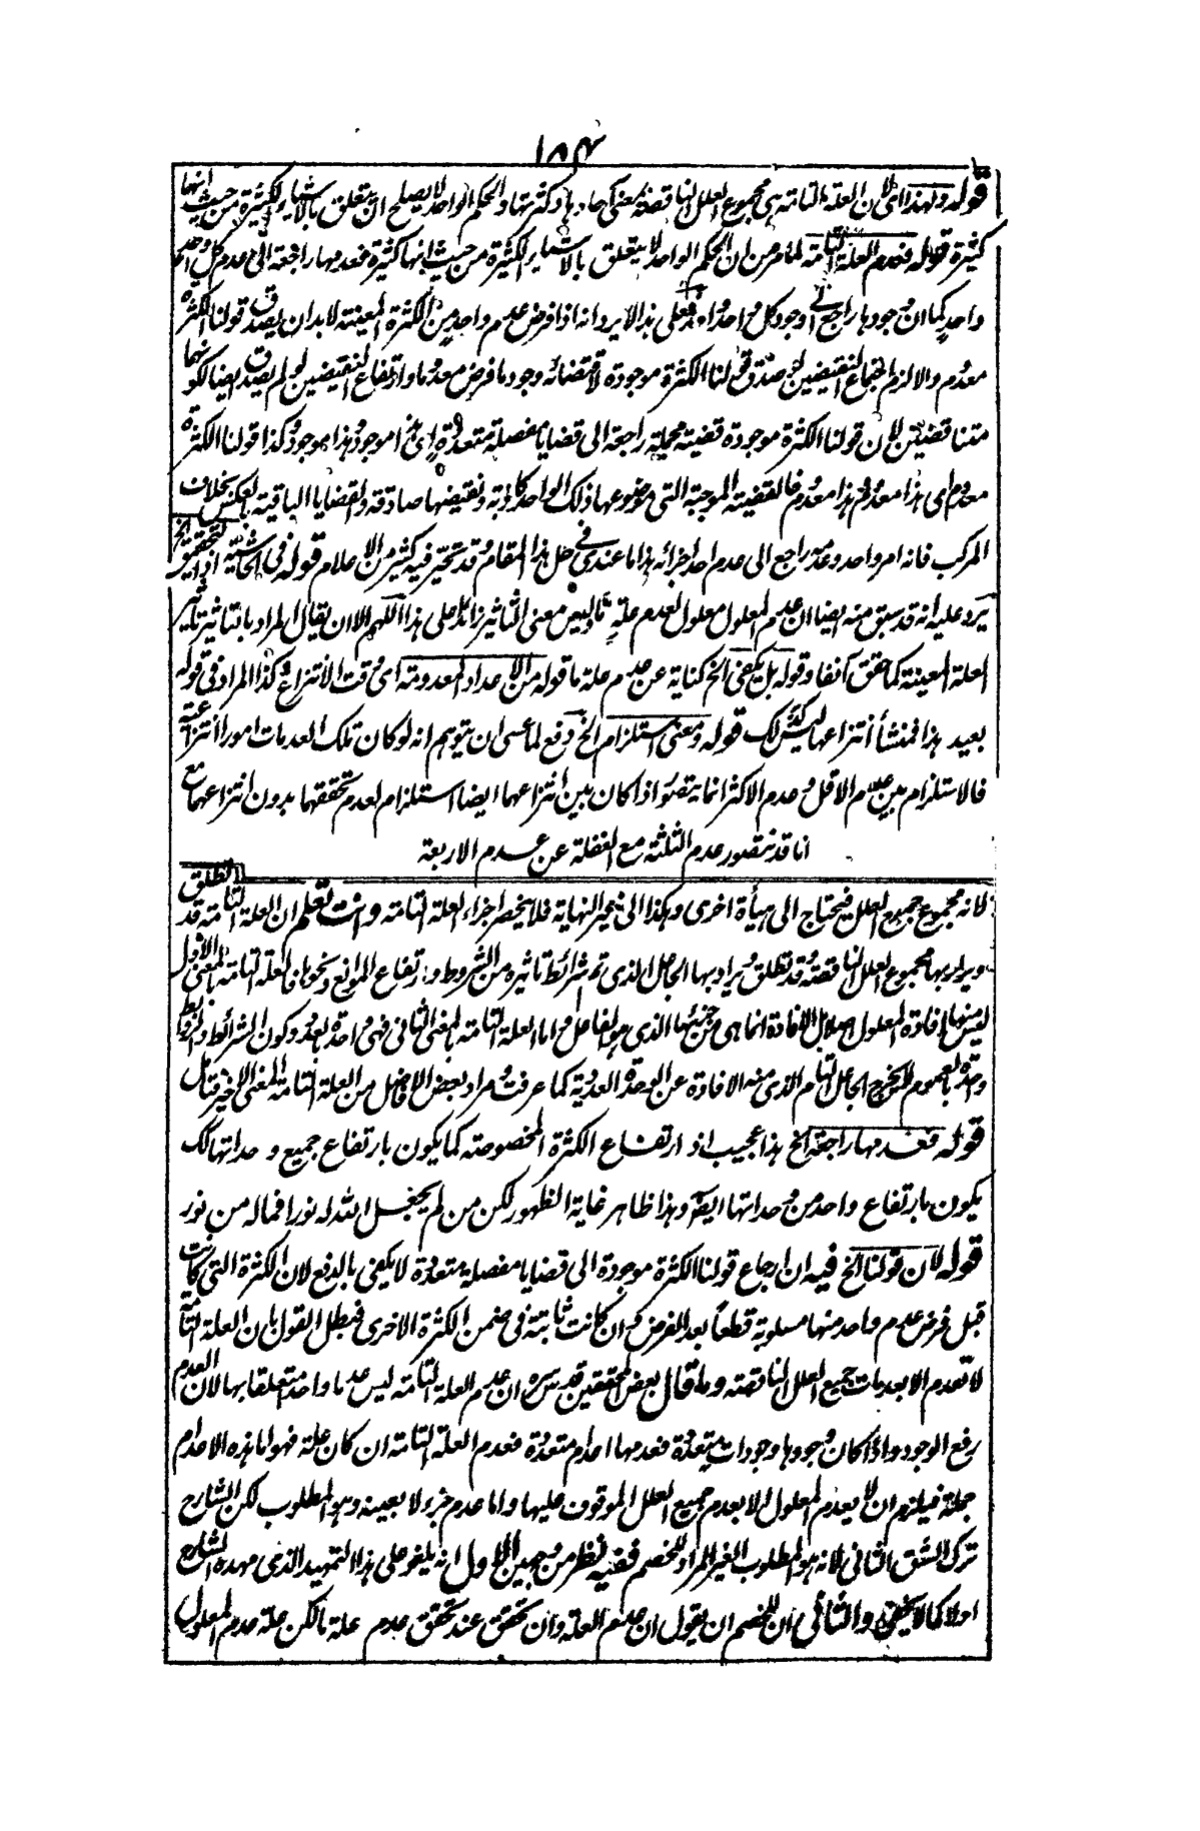 ١٨٤
قوله ولهذا اى لان العلة التامة هى مجموع العلل الناقصة بمعنى آحادها وكثرتها والحكم الواحد لا يصلح ان يتعلق بالاشياء الكثيرة من حيث انها
كثيرة قوله فعدم العلة التامة لما مر من ان الحكم الواحد لا يتعلق بالاشياء الكثيرة من حيث انها كثيرة فعدمها راجعة الى عدم كل واحد
واحد كما ان وجودها راجع الى وجود كل واحد واحد فعلى هذا لا يرد انه اذا فرض عدم واحد من الكثرة المعينة لابد ان يصدق قولنا الكثرة
معدوم والا لزم اجتماع النقيضين لو صدق قولنا الكثرة موجودة لاقتضائه وجود ما فرض معدوما وارتفاع النقيضين لو لم يصدق ايضا لكونهما
متناقضين لان قولنا الكثرة موجودة قضية مجملة راجعة الى قضايا مفصلة متعددة اى هذا موجود وهذا موجود وكذا قولنا الكثرة
معدوم اى هذا معدوم وهذا معدوم فالقضية الموجبة التى موضوعها ذلك الواحد كاذبة ونقيضها صادقة والقضايا الباقية بالعكس بخلاف
المركب فانه امر واحد وعدمه راجع الى عدم احد اجزائه هذا ما عندى فى حل هذا المقام وقد تحير فيه كثير من الاعلام قوله فى الحاشية اذ التحقيق الخ
يرد عليه انه قد سبق منه ايضا ان عدم المعلول معلول لعدم علة ما وليس معنى التاثير زائدا على هذا اللهم الا ان يقال المراد بالتاثير تاثير
العلة المعينة كما حقق آنفا وقوله بل يكفى الخ كناية عن عدم علة ما قوله من الاعداد المعدومة اى وقت الانتزاع وكذا المراد فى قوله
بعيد هذا فمنشأ انتزاعها ليس كذلك قوله ومعنى استلزام الخ دفع لما عسى ان يتوهم انه لو كان تلك العدمات امورا انتزاعية
فالاستلزام بين عدم الاقل وعدم الاكثر انما يتصور اذا كان بين انتزاعها ايضا استلزام لعدم تحققها بدون انتزاعها مع
انا قد نتصور عدم الثلثة مع الغفلة عن عدم الاربعة
لانه مجموع جميع العلل فيحتاج الى هيأة اخرى وهكذا الى غير النهاية فلا ينحصر اجزاء العلة التامة وانت تعلم ان العلة التامة قد تطلق
ويراد بها مجموع العلل الناقصة وقد تطلق ويراد بها الجاعل الذى تم شرائط تاثيره من الشروط وارتفاع الموانع ونحوها فالعلة التامة بالمعنى الاول
ليس منها افادة المعلول اصلا بل الافادة انما هى من جزئها الذى هو الفاعل واما العلة التامة بالمعنى الثانى فهى واحدة بالعدد وكون الشرائط والروابط
وحدة بالعموم لا يخرج الجاعل التام الذى منه الافادة عن الوحدة العددية كما عرفت ومراد بعض الافاضل من العلة التامة المعنى الاخير فتأمل
قوله فعدمها راجعة الخ هذا عجيب اذ ارتفاع الكثرة المخصوصة كما يكون بارتفاع جميع وحداتها كذلك
يكون بارتفاع واحد من وحداتها ايضا وهذا ظاهر غاية الظهور لكن من لم يجعل الله له نورا فماله من نور
قوله لان قولنا الخ فيه ان ارجاع قولنا الكثرة موجودة الى قضايا مفصلة متعددة لا يكفى بالدفع لان الكثرة التى كانت
قبل فرض عدم واحد منها مسلوبة قطعا بعد الفرض وان كانت ثابتة فى ضمن الكثرة الاخرى فبطل القول بان العلة التامة
لا تعدم الا بعدمات جميع العلل الناقصة وما قال بعض المحققين قدس سره ان عدم العلة التامة ليس عدما واحدا متعلقا بها لان العدم
رفع الوجود واذا كان وجودها وجودات متعددة فعدمها اعدام متعددة فعدم العلة التامة ان كان علة فهو اما هذه الاعدام
جملة فيلزم ان لا يعدم المعلول الا بعدم جميع العلل الموقوف عليها واما عدم جزء لا بعينه وهو المطلوب لكن الشارح
ترك الشق الثانى لانه هو المطلوب الغير المراد للخصم ففيه نظر من وجهين الاول انه يلغو على هذا التمهيد الذى مهده الشارح
اولا كما لا يخفى والثانى ان للخصم ان يقول ان عدم العلة وان تحقق عند تحقق عدم علة ما لكن علة عدم المعلول